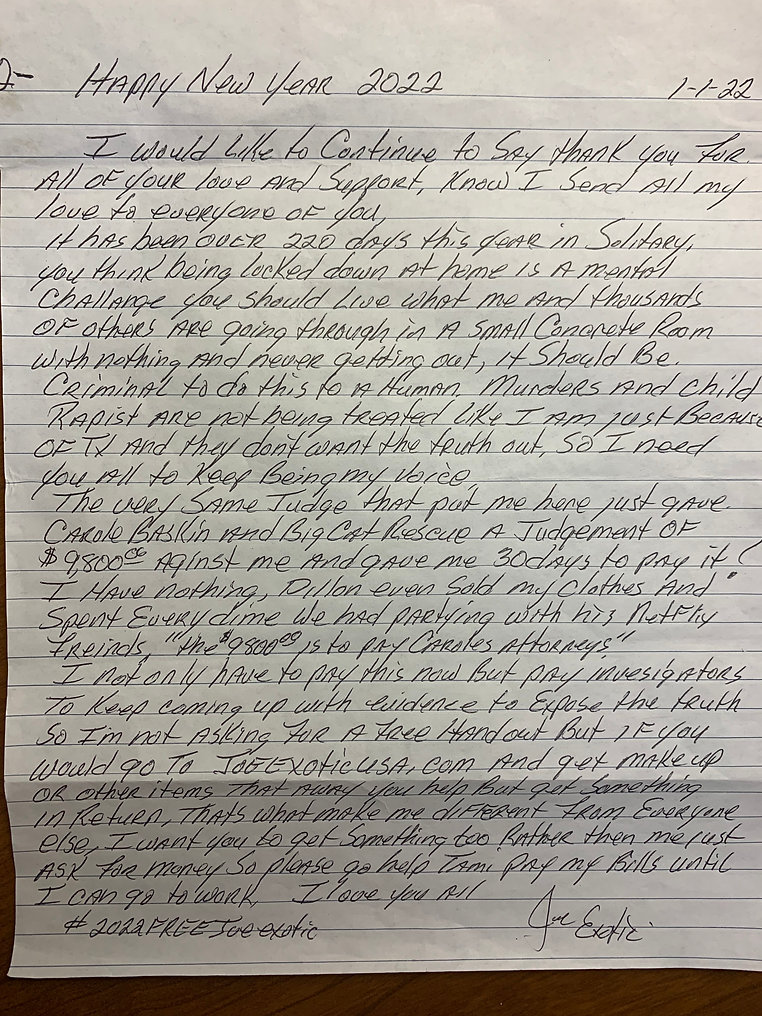 2- Happy New Year 2022 1-1-22
I would like to Continue to Say thank you For
All OF your love and Support, Know I Send All my
love to everyone of you,
it has been over 220 days this year in Solitary,
you think being locked down At home is A mental
Challange you should Live what me and thousands
OF others Are going through in A Small Concrete Room
with nothing And never getting out, it Should Be
Criminal to do this to A Human. Murders And child
Rapist Are not being treated like I am just Because
OF TV And they don't want the truth out, So I need
you All to Keep Being my voice.
The very Same Judge that put me here just gave
Carole Baskin and Big Cat Rescue A Judgement OF
$9,800 00 Aginst me And gave me 30 days to pay it!
I Have nothing, Dillon even Sold my Clothes And
Spent Every dime we had partying with his Netflix
Freinds, "the $9800 00 is to pay Caroles Attorneys"
I not only have to pay this now But pay invesigators
To Keep coming up with evidence to Expose the truth
So I'm not Asking For A Free Handout But iF you
would go To JoeExoticUSA.com And get make up
OR other items That away you help But get Something
in Return, Thats what make me different From Everyone
else, I want you to get Something too Rather then me just
Ask For money So please go help Tami pay my Bills until
I can go to work. I love you All
# 2022FREEJoeexotic Joe Exotic